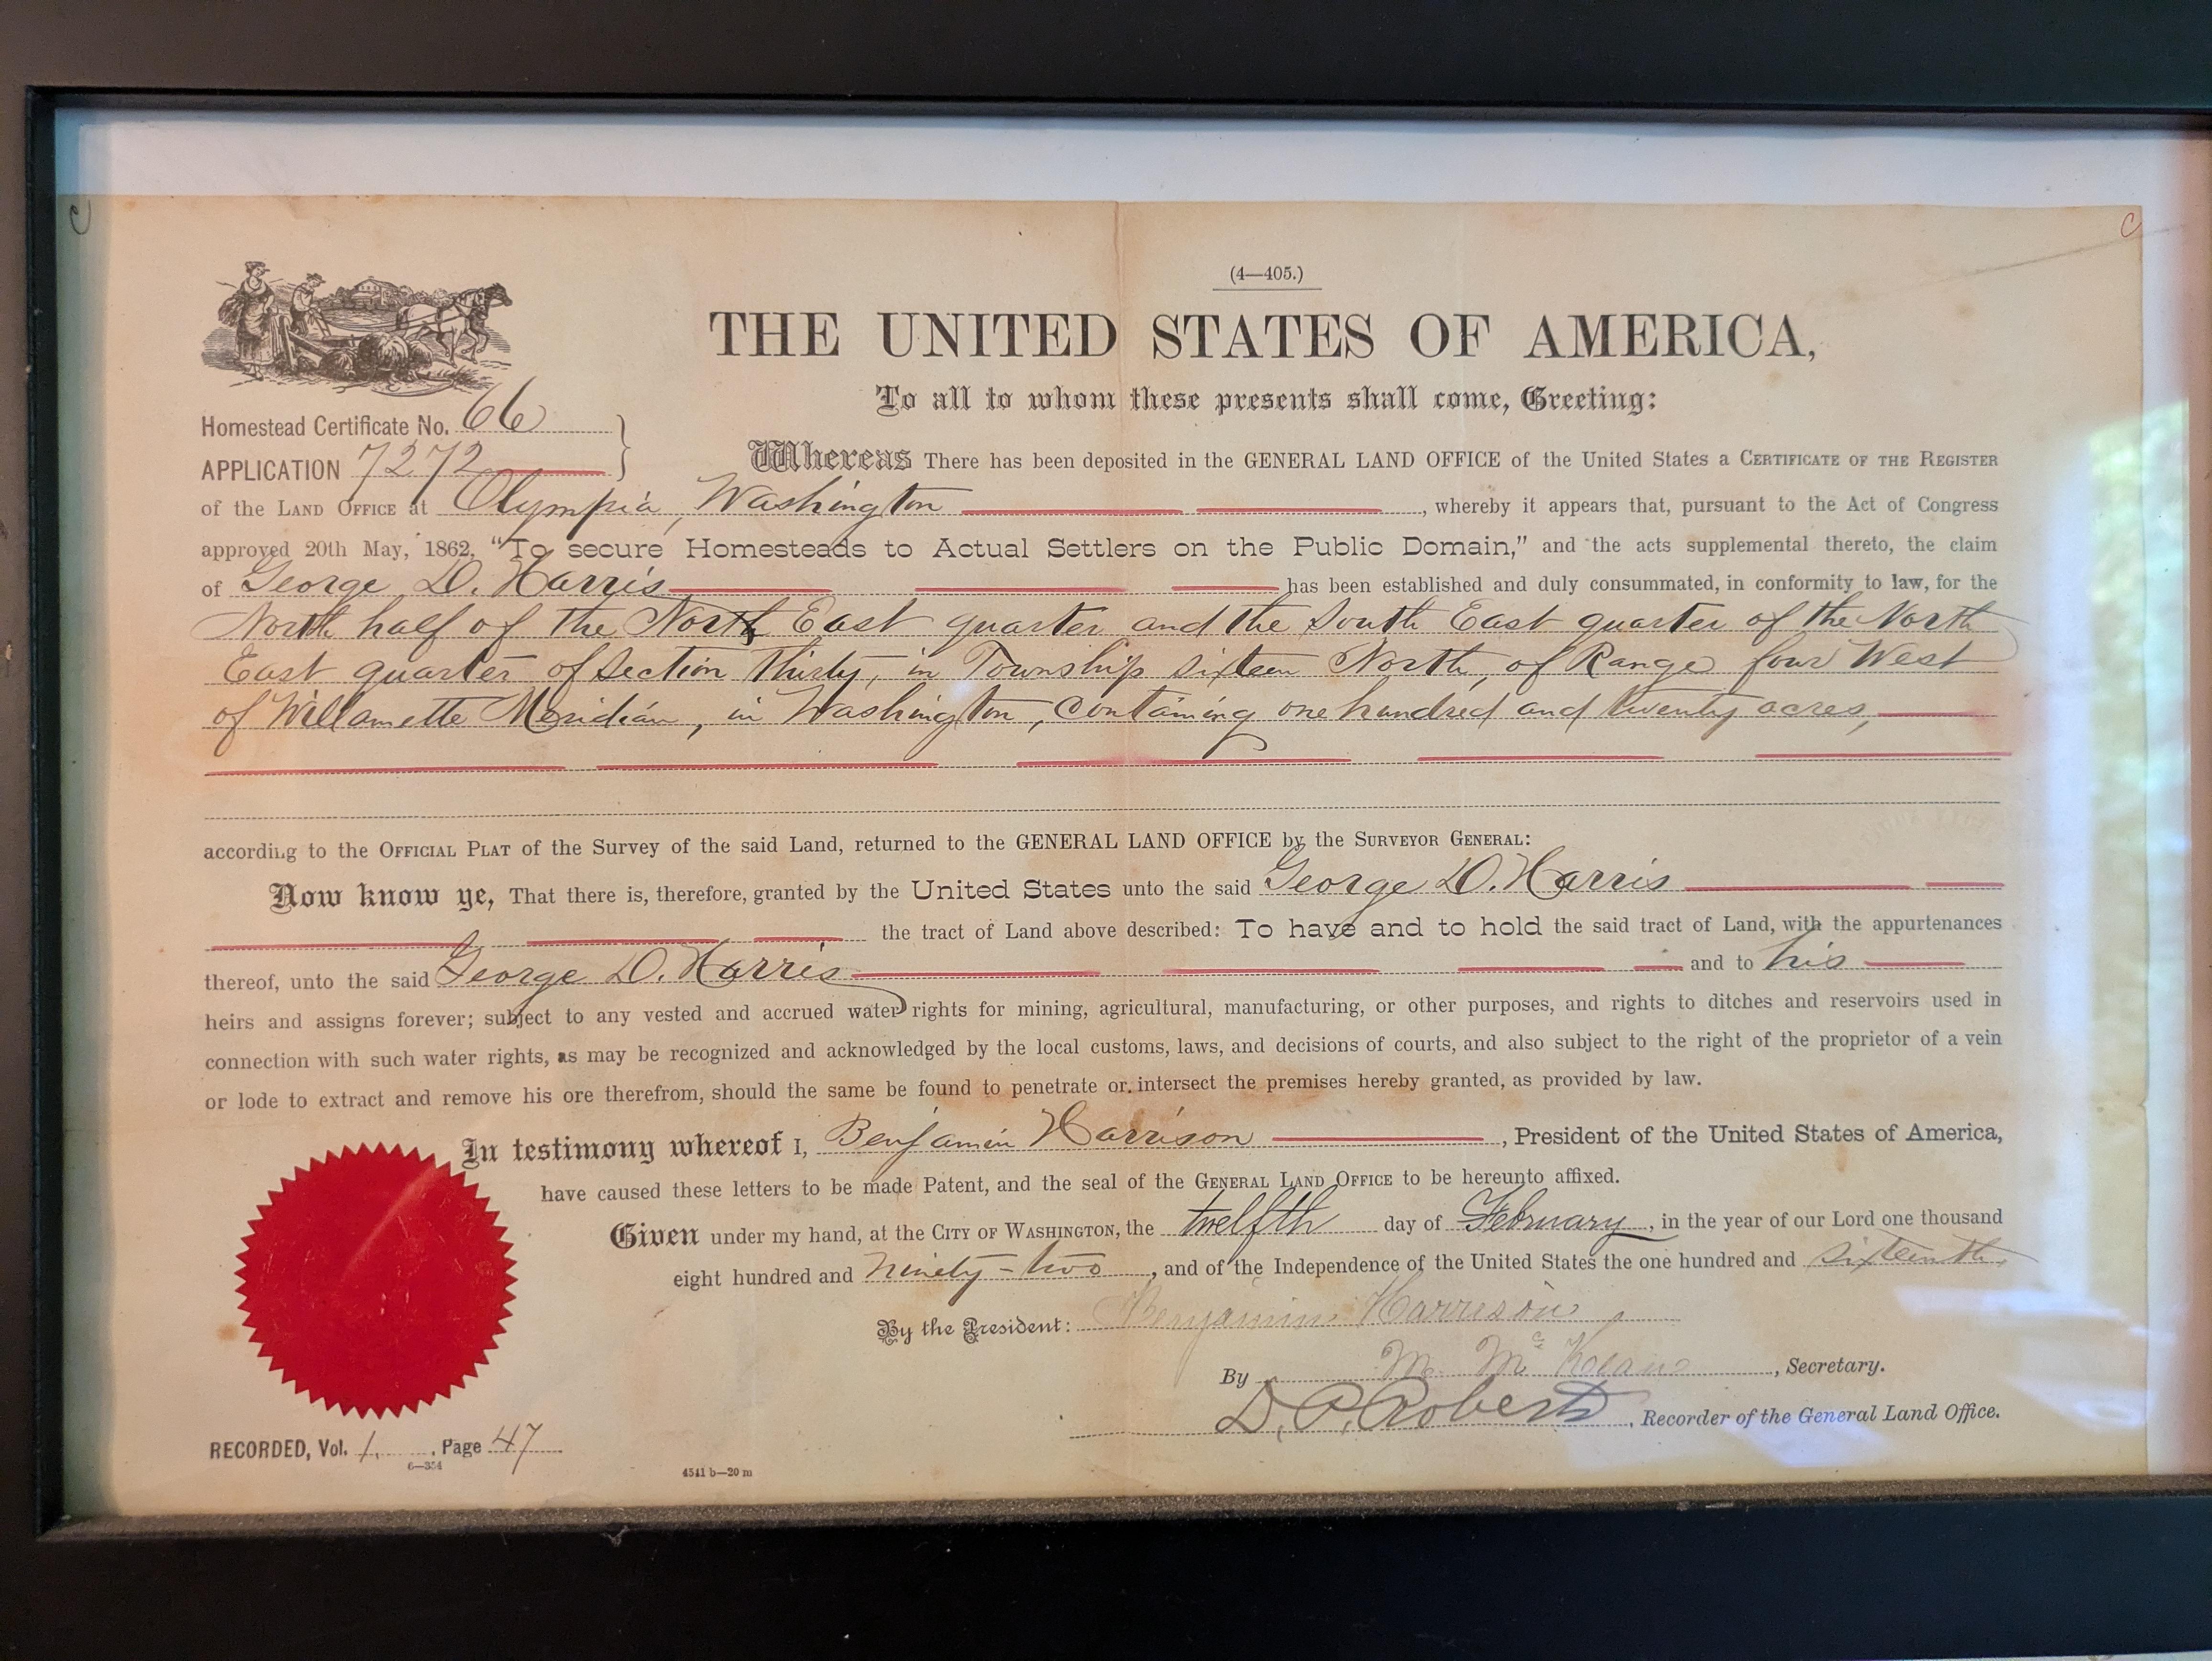 C
C
(4—405.)
THE UNITED STATES OF AMERICA,
To all to whom these presents shall come, Greeting:
Homestead Certificate No. 66
APPLICATION 7272
Whereas There has been deposited in the GENERAL LAND OFFICE of the United States a CERTIFICATE OF THE REGISTER
of the LAND OFFICE at Olympia, Washington, whereby it appears that, pursuant to the Act of Congress
approved 20th May, 1862, "To secure Homesteads to Actual Settlers on the Public Domain," and the acts supplemental thereto, the claim
of George D. Harris has been established and duly consummated, in conformity to law, for the
North half of the North East quarter and the South East quarter of the North
East quarter of Section thirty, in Township sixteen North, of Range four West
of Willamette Meridian, in Washington, containing one hundred and twenty acres,
according to the OFFICIAL PLAT of the Survey of the said Land, returned to the GENERAL LAND OFFICE by the SURVEYOR GENERAL:
Now know ye, That there is, therefore, granted by the United States unto the said George D. Harris
the tract of Land above described: To have and to hold the said tract of Land, with the appurtenances
thereof, unto the said George D. Harris and to his
heirs and assigns forever; subject to any vested and accrued water rights for mining, agricultural, manufacturing, or other purposes, and rights to ditches and reservoirs used in
connection with such water rights, as may be recognized and acknowledged by the local customs, laws, and decisions of courts, and also subject to the right of the proprietor of a vein
or lode to extract and remove his ore therefrom, should the same be found to penetrate or intersect the premises hereby granted, as provided by law.
In testimony whereof I, Benjamin Harrison, President of the United States of America,
have caused these letters to be made Patent, and the seal of the GENERAL LAND OFFICE to be hereunto affixed.
Given under my hand, at the CITY OF WASHINGTON, the twelfth day of February, in the year of our Lord one thousand
eight hundred and ninety-two, and of the Independence of the United States the one hundred and sixteenth.
By the President: Benjamin Harrison
By M. Mc, Secretary.
D. P. Roberts, Recorder of the General Land Office.
RECORDED, Vol. 1, Page 47
6—354
4541 b—20 m